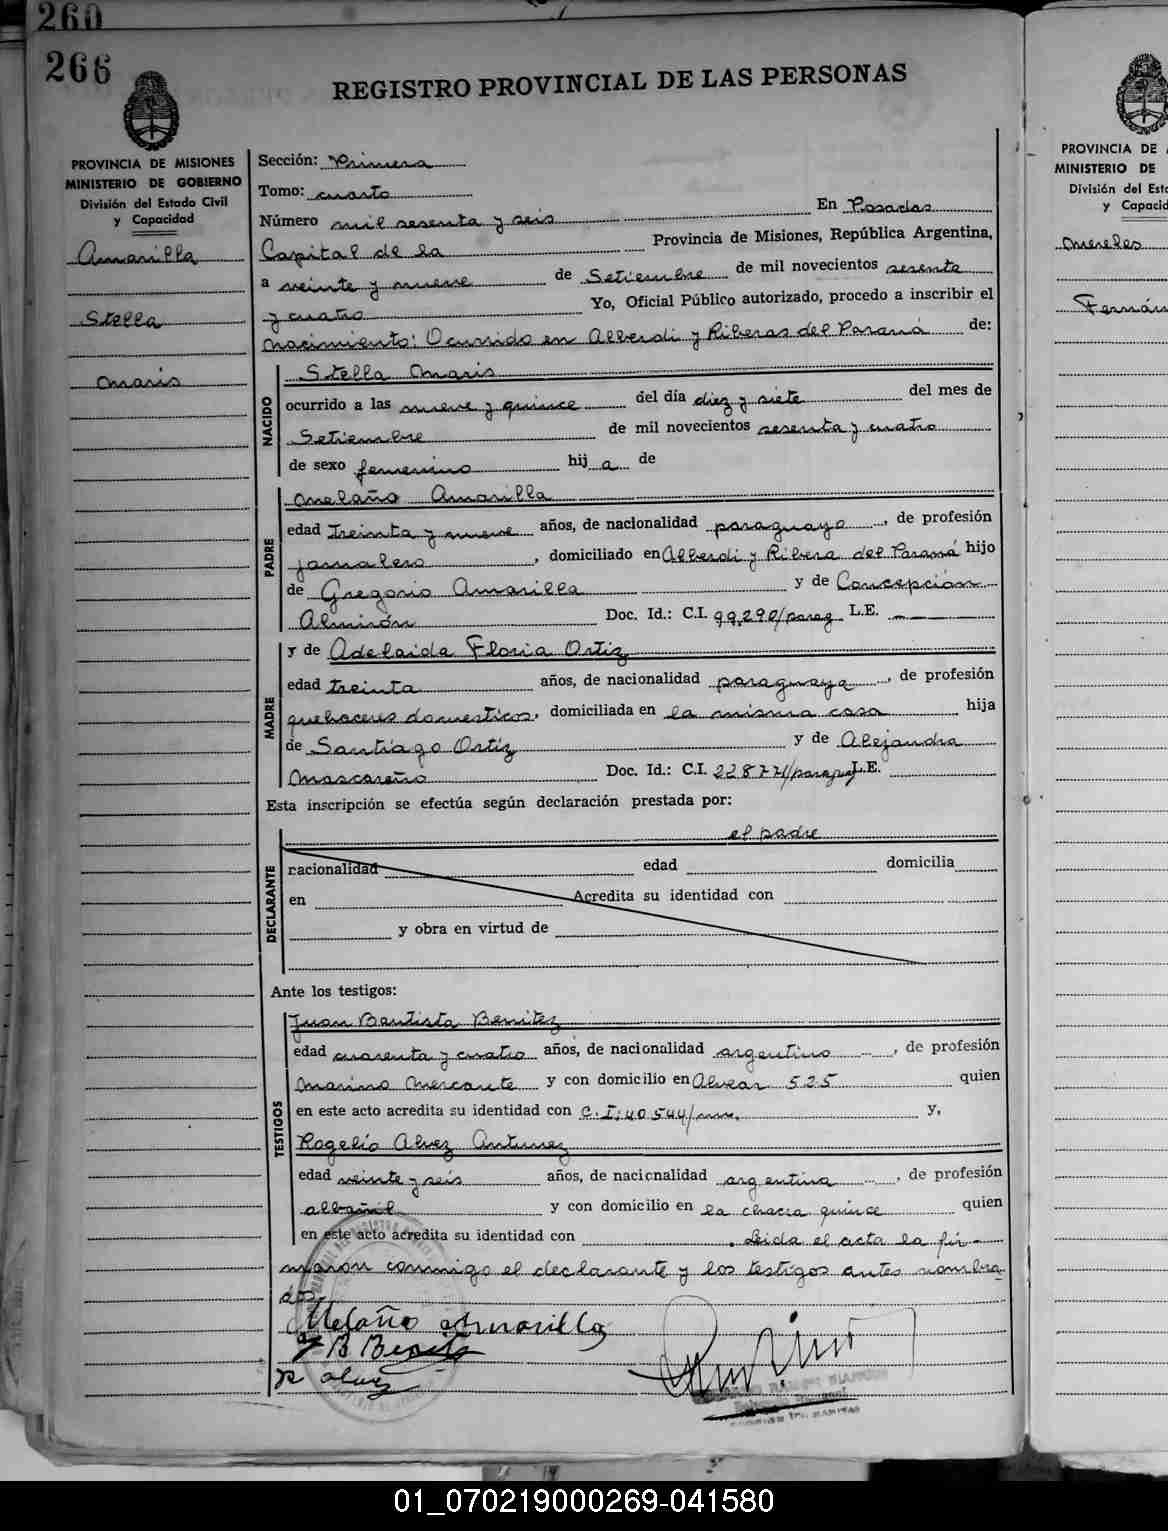 260
266
REGISTRO PROVINCIAL DE LAS PERSONAS
PROVINCIA DE MISIONES
MINISTERIO DE GOBIERNO
División del Estado Civil
y Capacidad
Amarilla
Stella
Maris
Sección: Primera
Tomo: cuarto
Número mil sesenta y seis En Posadas
Capital de la Provincia de Misiones, República Argentina,
a veinte y nueve de Setiembre de mil novecientos sesenta
y cuatro Yo, Oficial Público autorizado, procedo a inscribir el
nacimiento: Ocurrido en Alberdi y Riberas del Paraná de:
NACIDO
Stella Maris
ocurrido a las nueve y quince del día diez y siete del mes de
Setiembre de mil novecientos sesenta y cuatro
de sexo femenino hij a de
PADRE
Melaño Amarilla
edad treinta y nueve años, de nacionalidad paraguayo, de profesión
jornalero, domiciliado en Alberdi y Ribera del Paraná hijo
de Gregorio Amarilla y de Concepción
Almirón Doc. Id.: C.I. 99.290/parag L.E.
MADRE
y de Adelaida Floria Ortiz
edad treinta años, de nacionalidad paraguaya, de profesión
quehaceres domesticos, domiciliada en la misma casa hija
de Santiago Ortiz y de Alejandra
Mascareño Doc. Id.: C.I. 228771/parag L.E.
Esta inscripción se efectúa según declaración prestada por:
el padre
DECLARANTE
nacionalidad edad domicilia
en Acredita su identidad con
y obra en virtud de
Ante los testigos:
TESTIGOS
Juan Bautista Benitez
edad cuarenta y cuatro años, de nacionalidad argentino, de profesión
Marino Mercante y con domicilio en Alvear 525 quien
en este acto acredita su identidad con C.I: 40544/mm. y,
Rogelio Alvez Antunez
edad veinte y seis años, de nacionalidad argentina, de profesión
albañil y con domicilio en la chacra quince quien
en este acto acredita su identidad con . Leida el acta la fir-
maron conmigo el declarante y los testigos antes nombra-
dos.
Melaño Amarilla
J B Benitez
R Alvez
PROVINCIA DE
MINISTERIO DE
División del Esta
y Capacid
Meneles
Fernán
01_070219000269-041580